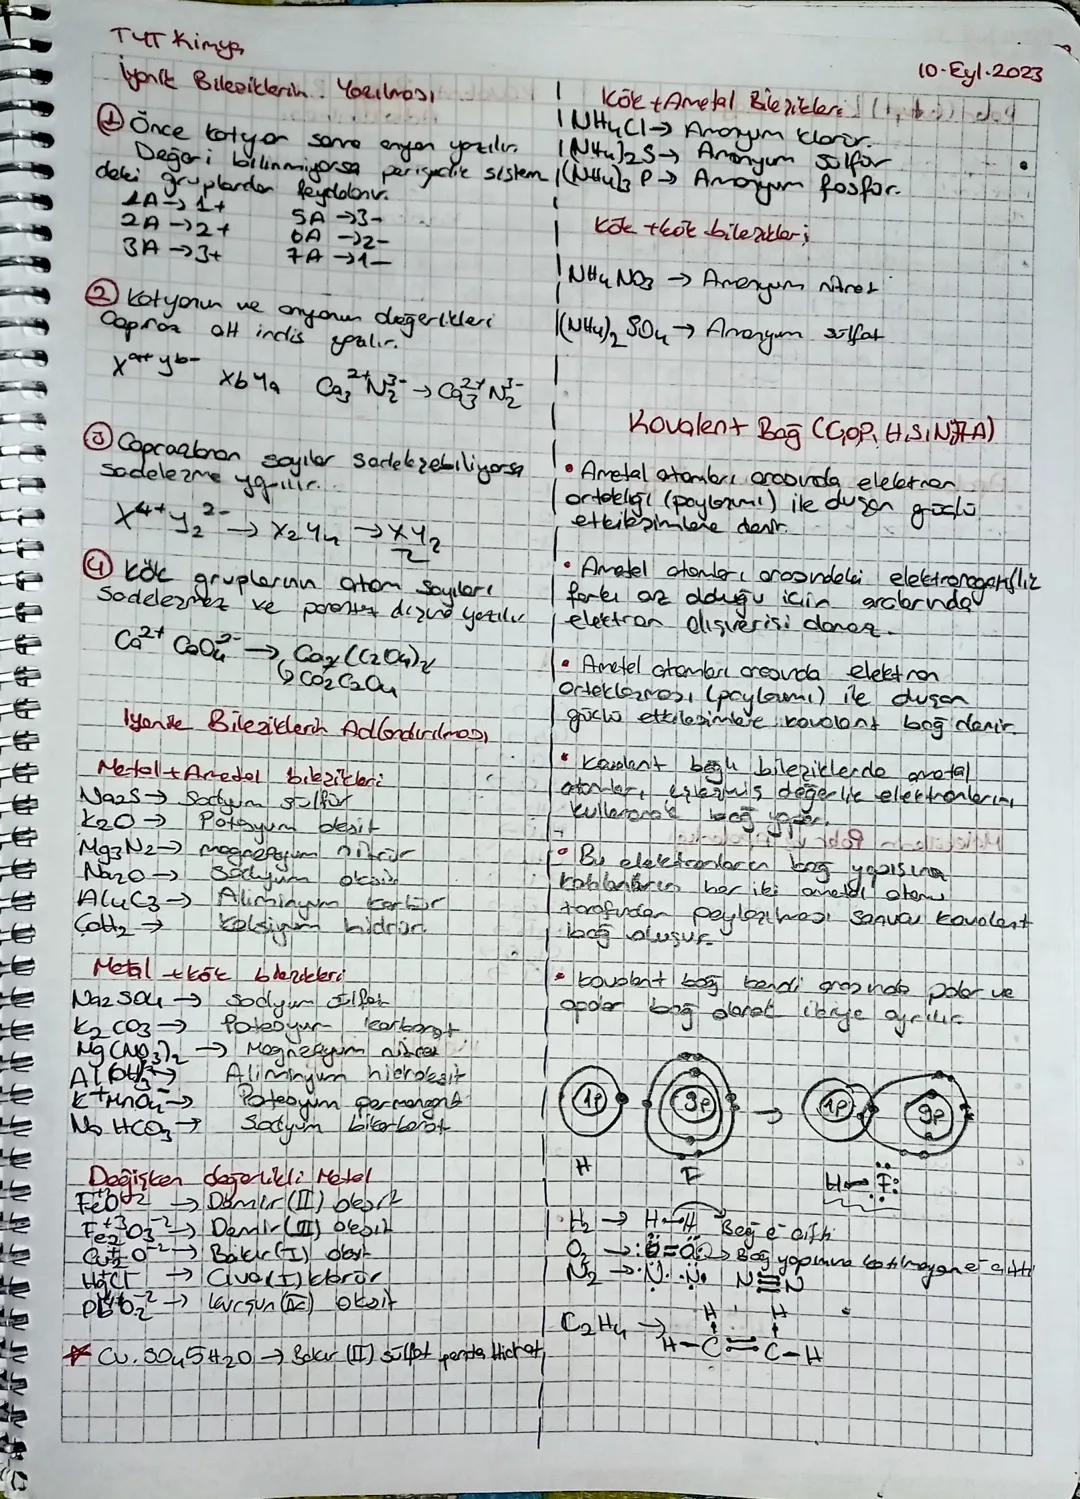 TYT Kimya
10.Eyl.2023
İyonik Bileşiklerin Yazılması
① Önce katyon sonra anyon yazılır.
Değeri bilinmiyorsa periyodik sistem
deki gruplardan faydalanır.
1A → 1+
2A → 2+
3A → 3+
5A → 3-
6A → 2-
7A → 1-
② Katyonun ve anyonun değerlikleri
Çapraz alt indis yazılır.
X^a+ Y^b- XbYa Ca₃²⁺N₂³⁻ → Ca₃²⁺N₂³⁻
③ Çaprazlanan sayılar sadeleşebiliyorsa
sadeleşme yapılır.
X⁴⁺Y₂²⁻ → X₂Y₄ → XY₂
2
④ Kök gruplarının atom sayıları
Sadeleşmez ve parantez dışına yazılır
Ca²⁺ C₂O₄²⁻ → Ca₂(C₂O₄)₂
CO2C2O4
İyonik Bileşiklerin Adlandırılması
Metal + Ametal bileşikleri
Na2S → Sodyum sülfür
K2O → Potasyum oksit
Mg3N2 → magnezyum nitrür
Na2O → Sodyum oksit
Al4C3 → Aliminyum karbür
CaH2 → kalsiyum hidrür.
Metal + kök bileşikleri
Na2SO4 → Sodyum sülfat
K2CO3 → Potasyum karbonat
Mg(NO3)2 → Magnezyum nitrat
Al(OH)3 → Aliminyum hidroksit
K⁺MnO4⁻ → Potasyum permanganat
NaHCO3 → Sodyum bikarbonat
Değişken değerlikli Metal
Fe⁺²O⁻² → Demir (II) oksit
Fe2⁺³O3⁻² → Demir (III) oksit
Cu2⁺O⁻² → Bakır (I) oksit
HgCl → Civa (I) klorür
PbO2⁻² → kurşun (IV) oksit
* Cu.SO4 5H2O → Bakır (II) sülfat penta Hidrat
Kök + Ametal Bileşikleri
NH4Cl → Amonyum klorür.
(NH4)2S → Amonyum sülfür
(NH4)3P → Amonyum fosfür.
Kök + kök bileşikleri
NH4NO3 → Amonyum nitrat
(NH4)2SO4 → Amonyum sülfat
Kovalent Bağ (C,O,P,H,S,N,7A)
• Ametal atomları arasında elektron
ortaklığı (paylaşımı) ile oluşan güçlü
etkileşimlere denir.
• Ametal atomları arasındaki elektronegatiflik
farkı az olduğu için aralarında
elektron alışverişi olmaz.
• Ametal atomları arasında elektron
ortaklaşması (paylaşımı) ile oluşan
güçlü etkileşimlere kovalent bağ denir.
• Kovalent bağlı bileşiklerde ametal
atomları, eşleşmiş değerlik elektronlarını
kullanarak bağ yapar.
• Bu elektronların bağ yapısına
katılanların her iki ametal atomu
tarafından paylaşılması sonucu kovalent
bağ oluşur.
• kovalent bağ kendi arasında polar ve
apolar bağ olarak ikiye ayrılır.
1p 9p → 1p 9p
H F H-F:
H2 → H-H Bağ e⁻ çifti
O2 → :O=O: → Bağ yapımına katılmayan e⁻ çifti
N2 → N N N≡N
C2H4 → H H
H-C=C-H